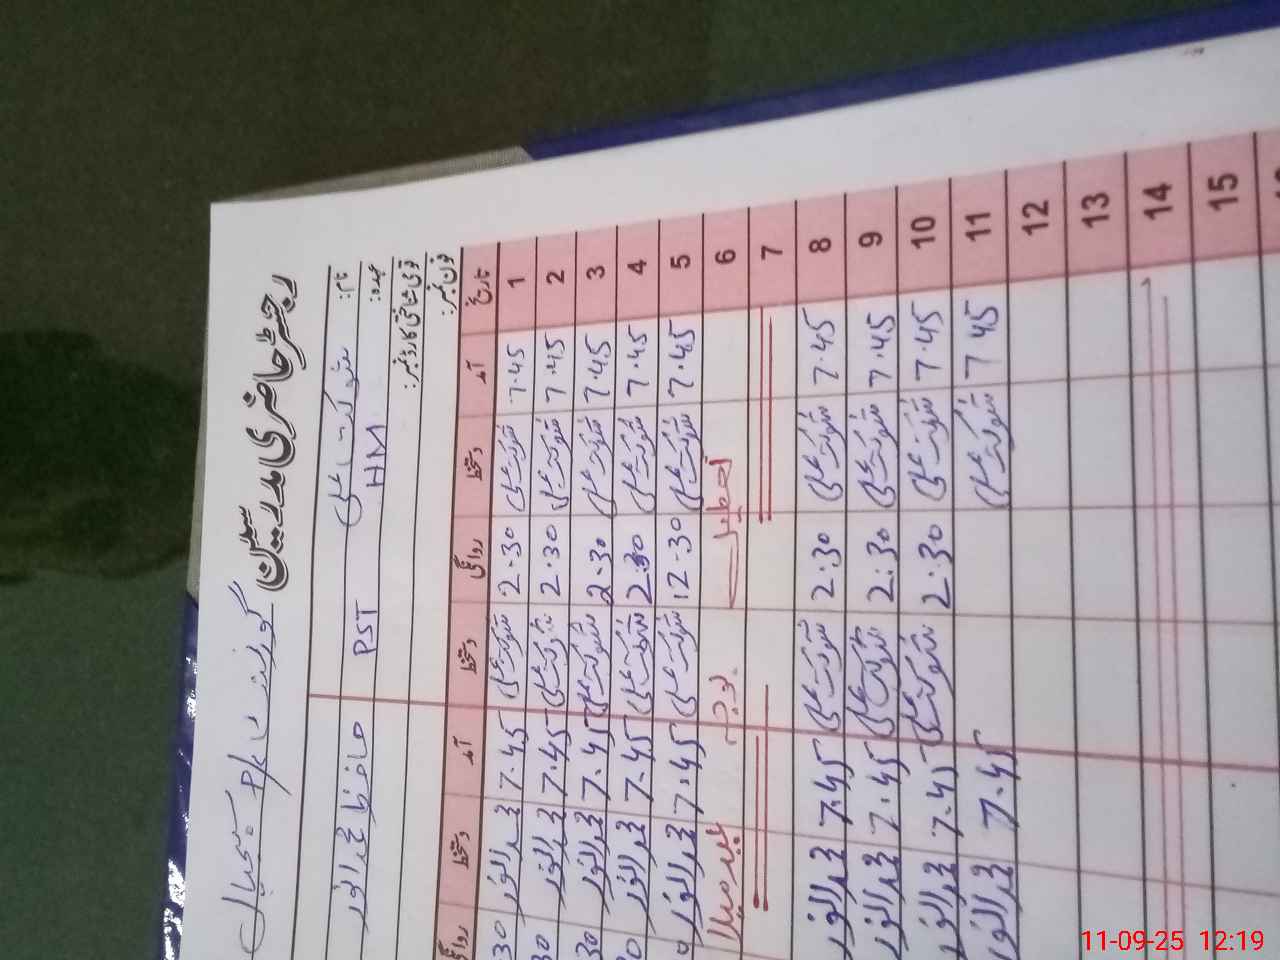 رجسٹر حاضری مدرسین گورنمنٹ P/S
نام: شوکت علی حافظ محمد انور
عہدہ: HM PST
قومی شناختی کارڈ نمبر:
فون نمبر:
تاریخ آمد دستخط روانگی دستخط آمد دستخط روانگی
1 7.45 شوکت علی 2.30 شوکت علی 7.45 محمد انور 30
2 7.45 شوکت علی 2.30 شوکت علی 7.45 محمد انور 30
3 7.45 شوکت علی 2.30 شوکت علی 7.45 محمد انور 30
4 7.45 شوکت علی 2.30 شوکت علی 7.45 محمد انور
5 7.45 شوکت علی 12.30 شوکت علی 7.45 محمد انور
6 تعطیل
7
8 7.45 شوکت علی 2.30 شوکت علی 7.45 محمد انور
9 7.45 شوکت علی 2.30 شوکت علی 7.45 محمد انور
10 7.45 شوکت علی 2.30 شوکت علی 7.45 محمد انور
11 7 45 شوکت علی 7.45 محمد انور
12
13
14
15
11-09-25 12:19